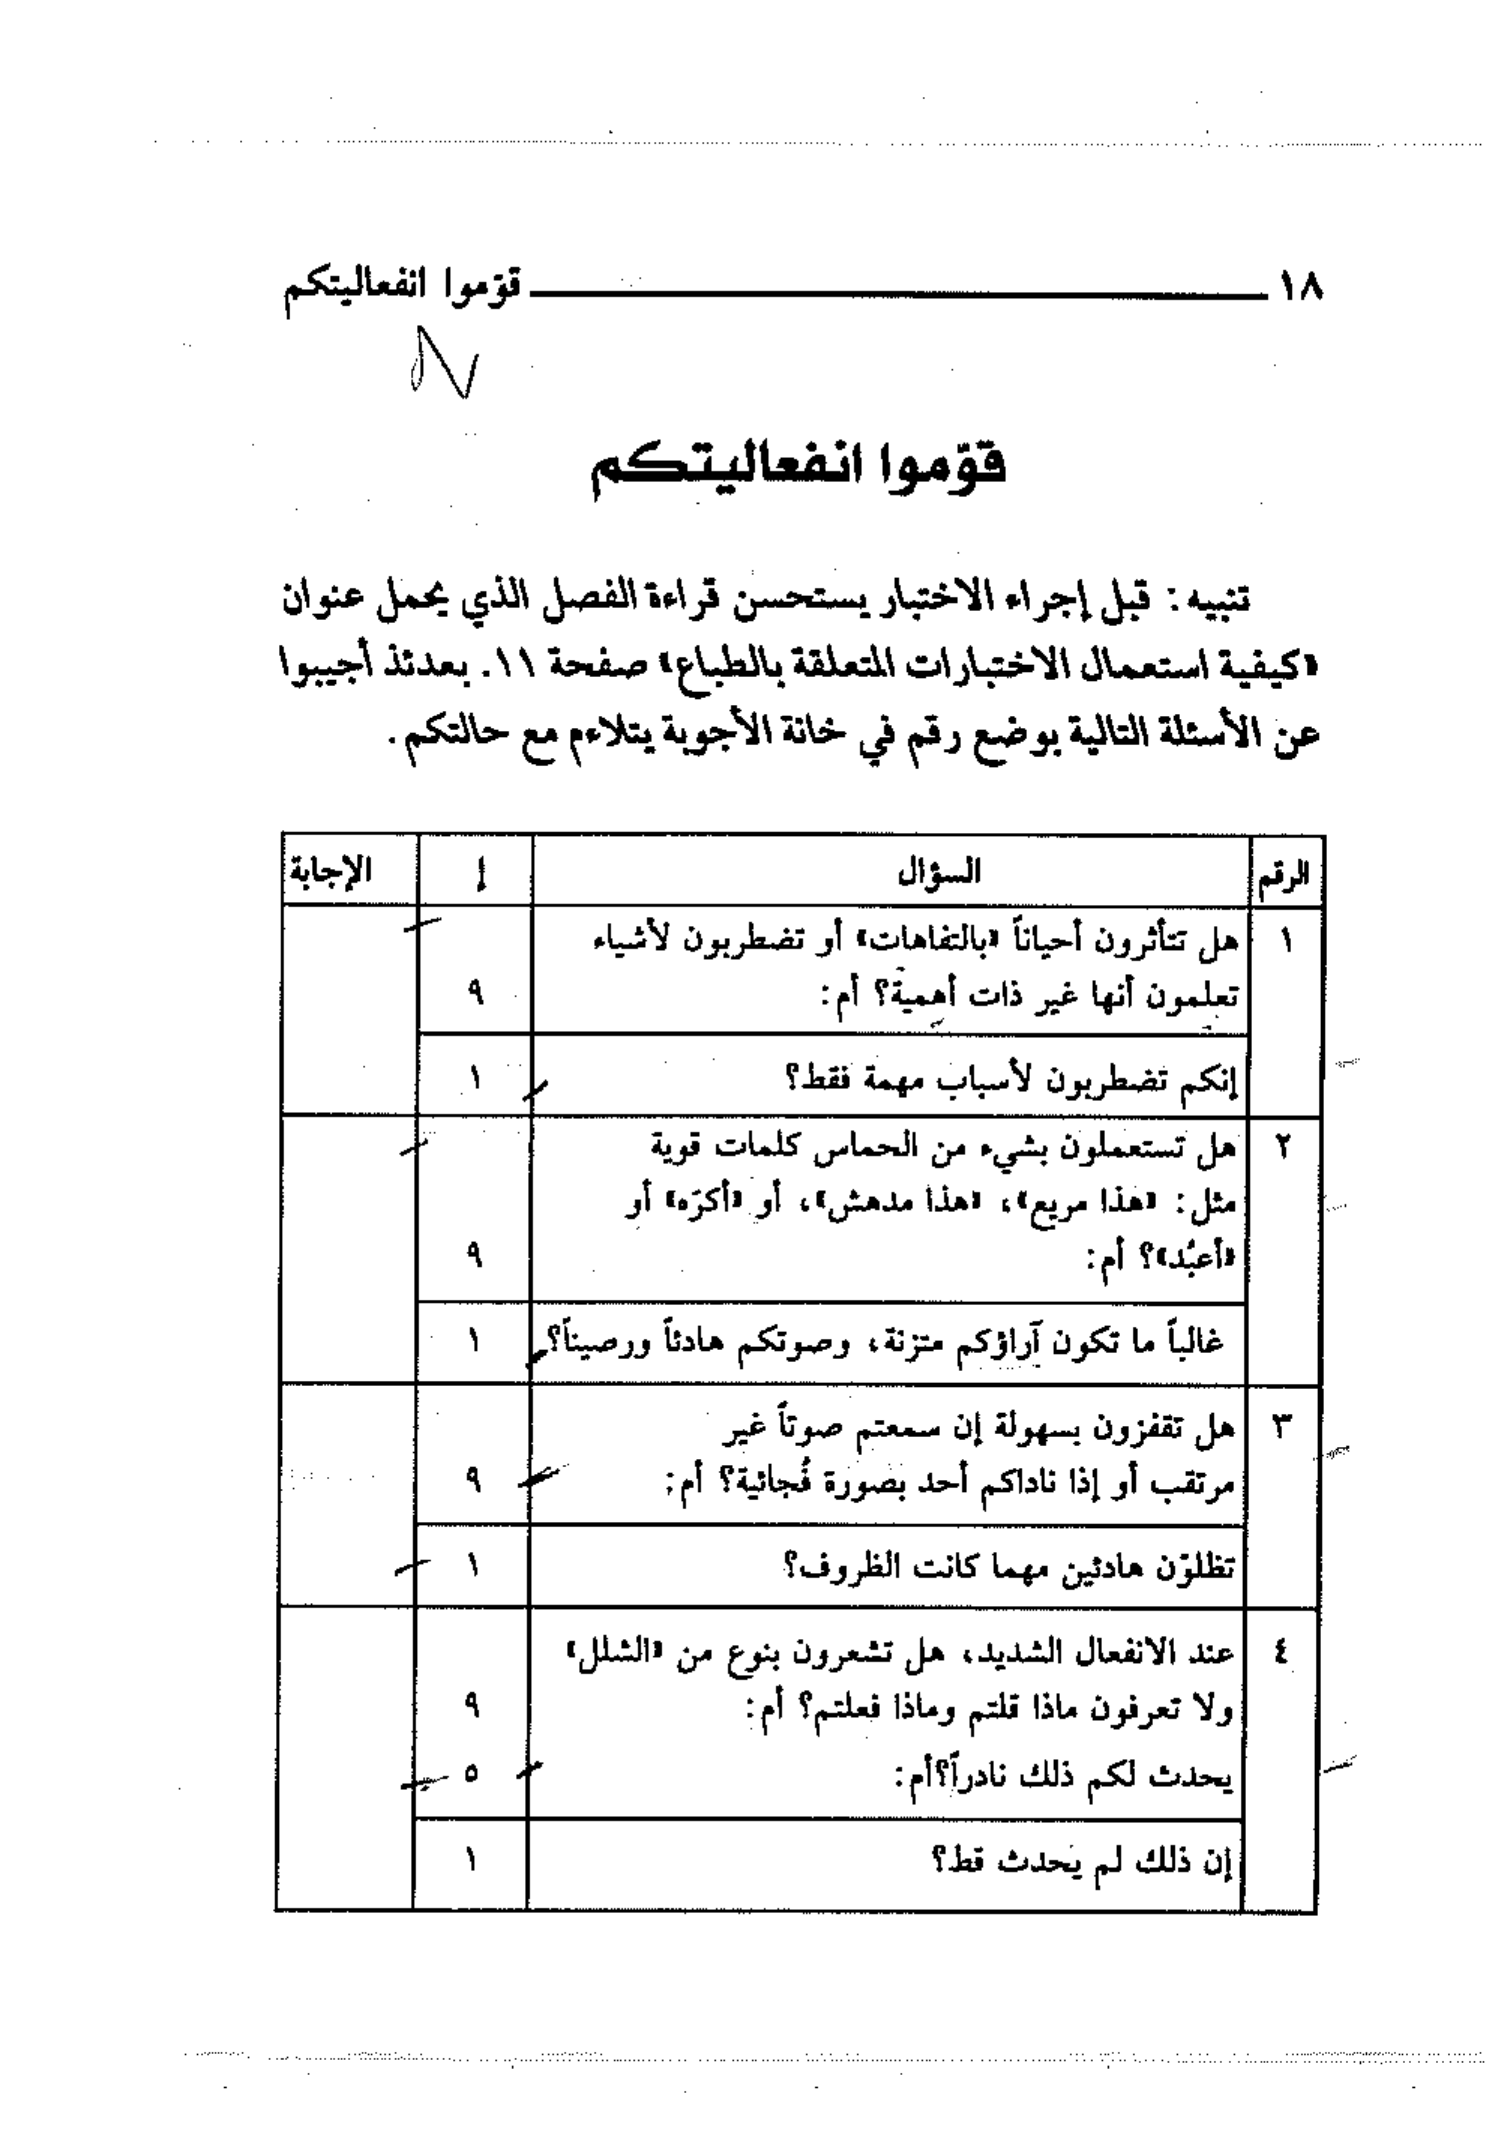 ١٨ قوّموا انفعاليتكم
قوّموا انفعاليتكم
تنبيه: قبل إجراء الاختبار يستحسن قراءة الفصل الذي يحمل عنوان
«كيفية استعمال الاختبارات المتعلقة بالطباع» صفحة ١١. بعدئذ أجيبوا
عن الأسئلة التالية بوضع رقم في خانة الأجوبة يتلاءم مع حالتكم.
الرقم السؤال إ الإجابة
١ هل تتأثرون أحياناً «بالتفاهات» أو تضطربون لأشياء
تعلمون أنها غير ذات أهمية؟ أم: ٩
إنكم تضطربون لأسباب مهمة فقط؟ ١
٢ هل تستعملون بشيء من الحماس كلمات قوية
مثل: «هذا مريع»، «هذا مدهش»، أو «أكرَه» أو
«أعبُد»؟ أم: ٩
غالباً ما تكون آراؤكم متزنة، وصوتكم هادئاً ورصيناً؟ ١
٣ هل تقفزون بسهولة إن سمعتم صوتاً غير
مرتقب أو إذا ناداكم أحد بصورة فُجائية؟ أم: ٩
تظلوّن هادئين مهما كانت الظروف؟ ١
٤ عند الانفعال الشديد، هل تشعرون بنوع من «الشلل»
ولا تعرفون ماذا قلتم وماذا فعلتم؟ أم: ٩
يحدث لكم ذلك نادراً؟أم: ٥
إن ذلك لم يحدث قط؟ ١